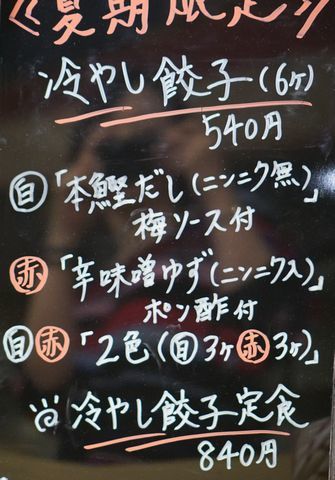 《夏期限定》
冷やし餃子(6ヶ)
540円
白「本鰹だし(ニンニク無)」
梅ソース付
赤「辛味噌ゆず(ニンニク入)」
ポン酢付
白赤「2色(白3ヶ赤3ヶ)」
冷やし餃子定食
840円